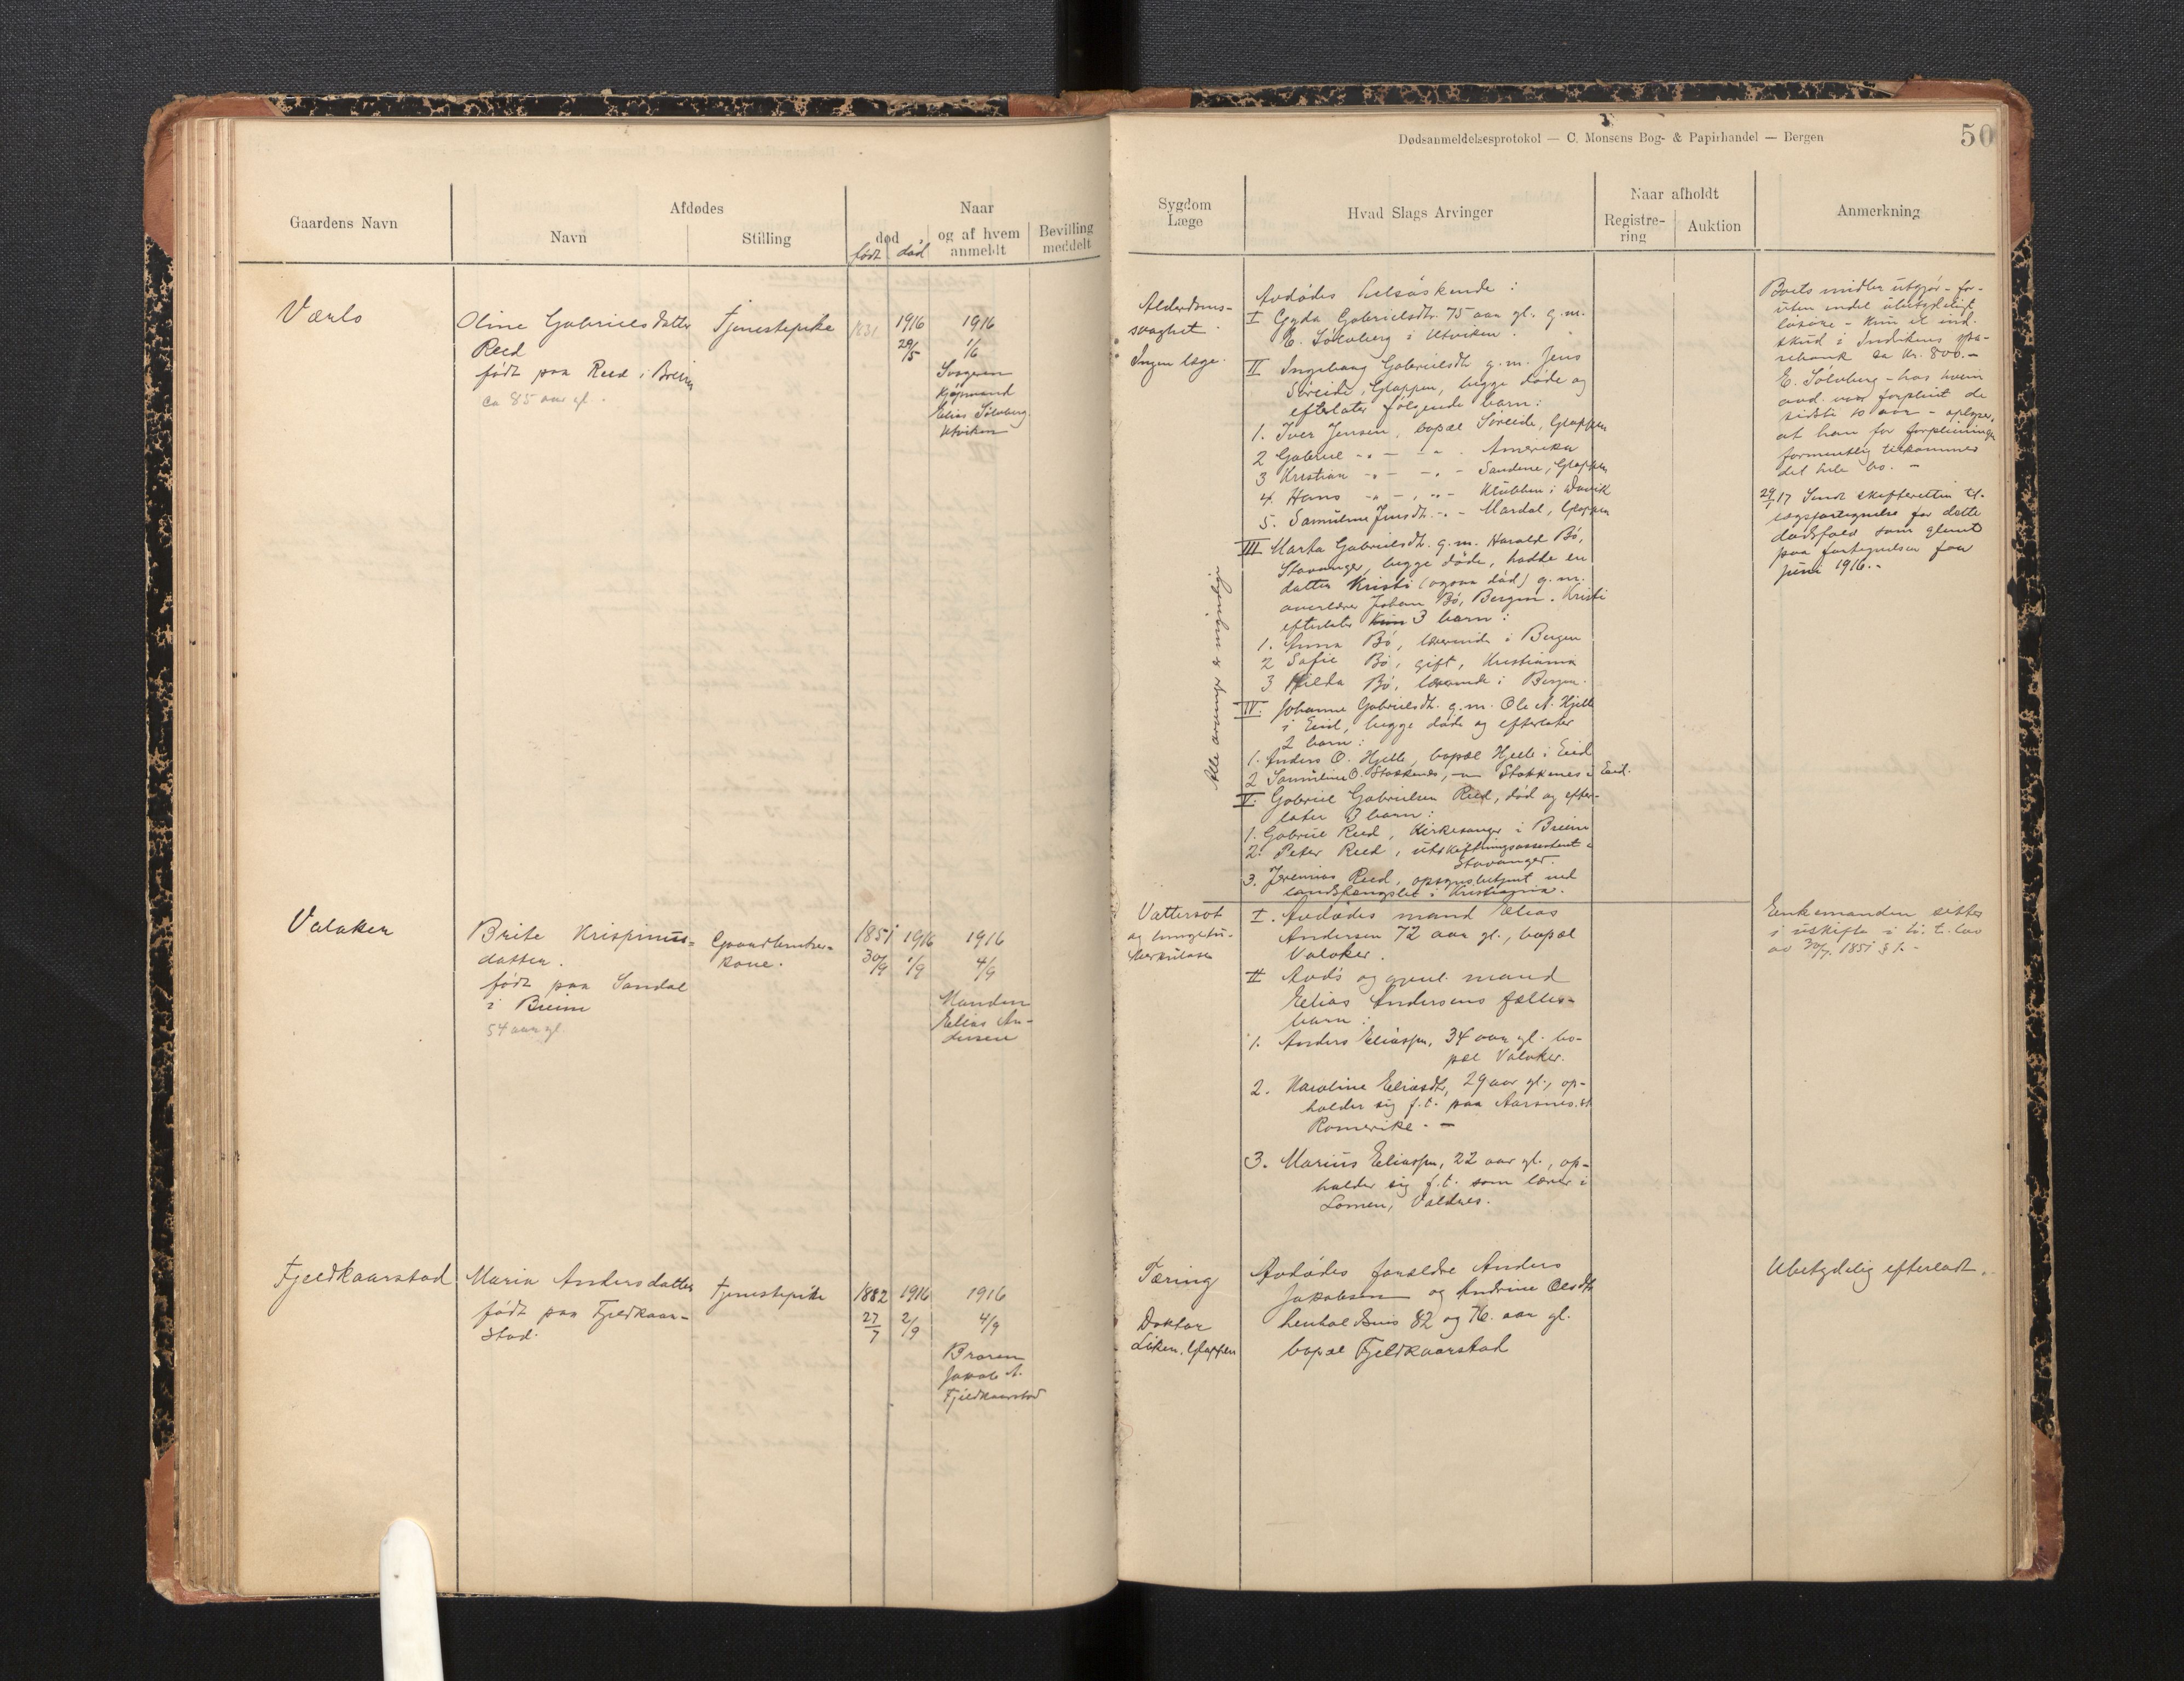 Dødsanmeldelsesprotokol — C. Monsens Bog- & Papirhandel — Bergen
50
Gaardens Navn
Afdødes
Navn
Stilling
Naar
død
født død
og af hvem
anmeldt
Bevilling
meddelt
Sygdom
Læge
Hvad Slags Arvinger
Naar afholdt
Registre-
ring
Auktion
Anmerkning
Værlo
Oline Gabrielsdatter
Reed
født paa Reed i Breim
ca 85 aar gl.
Tjenestepike
1831
1916
29/5
1916
1/6
Svogeren
Kjøpmand
Elias Sølvberg
Utviken
Alderdoms-
svaghet.
Ingen læge.
Avdødes helsøskende:
I Gyda Gabrielsdtr. 75 aar gl. g.m.
E. Sølvberg i Utviken.
II Ingeborg Gabrielsdtr g.m. Jens
Søreide, Gloppen, begge døde og
efterlater følgende barn:
1. Iver Jensen, bopæl Søreide, Gloppen
2 Gabriel -"- — -"- Amerika
3 Kristian -"- — -"- Sandene, Gloppen
4. Hans -"- — -"- Klubben i Davik
5. Samuline Jensdtr. -"- Mardal, Gloppen
III Marta Gabrielsdtr. g.m. Harald Bø,
Stavanger, begge døde, hadde en
datter Kristi (ogsaa død) g.m.
overlærer Johan Bø, Bergen. Kristi
efterlater kun 3 barn:
1. Anna Bø, lærerinde i Bergen
2 Sofie Bø, gift, Kristiania
3 Hilda Bø, lærerinde i Bergen.
IV. Johanne Gabrielsdtr. g.m. Ole A. Hjelle
i Eid, begge døde og efterlater
2 barn:
1. Anders O. Hjelle, bopæl Hjelle i Eid
2 Samuline O. Stokkenes, -"- Stokkenes i Eid.
V. Gabriel Gabrielsen Reed, død og efter-
later 3 barn:
1. Gabriel Reed, Kirkesanger i Breim
2. Peter Reed, utskiftningsassistent i
Stavanger.
3. Jeremias Reed, opsynsbetjent ved
landsfængslet i Kristiania.
Alle arvinger er myndige
Boets midler utgjør - for-
uten endel ubetydelig
løsøre - kun et ind-
skud i Indvikens spa-
rebank ca kr. 800.—
E. Sølvberg - hos hvem
avd. var forpleiet de
sidste 10 aar - oplyser,
at han for forpleiningen
formentlig tilkommer
det hele bo. —
29/1 17 Sendt skifteretten til-
lægsfortegnelse for dette
dødsfald som glemt
paa fortegnelsen for
juni 1916.-
Valaker
Brite Krispinus-
datter.
født paa Sandal
i Breim
54 aar gl.
Gaardbruker-
kone.
1851
30/9
1916
1/9
1916
4/9
Manden
Elias An-
dersen
Vattersot
og lungetu-
berkulose
I. Avdødes mand Elias
Andersen 72 aar gl., bopæl
Valaker.
II Avd's og gjenl. mand
Elias Andersens fælles-
barn:
1. Anders Eliassen, 34 aar gl. bo-
pæl Valaker.
2. Karoline Eliasdtr, 29 aar gl., op-
holder sig f.t. paa Aarsnes st
Romerike. —
3. Marius Eliassen, 22 aar gl., op-
holder sig f.t. som lærer i
Lomen, Valdres.
Enkemanden sitter
i uskifte i h. t. lov
av 30/7. 1851 § 1.-
Fjeldkaarstad
Maria Andersdatter
født paa Fjeldkaar-
stad.
Tjenestepike
1882
27/7
1916
2/9
1916
4/9
Broren
Jakob A.
Fjeldkaarstad
Tæring
Doktor
Gloppen
Avdødes forældre Anders
Jakobsen og Andrine Olsdtr
henholdsvis 82 og 76. aar gl.
bopæl Fjeldkaarstad
Ubetydelig efterladt.